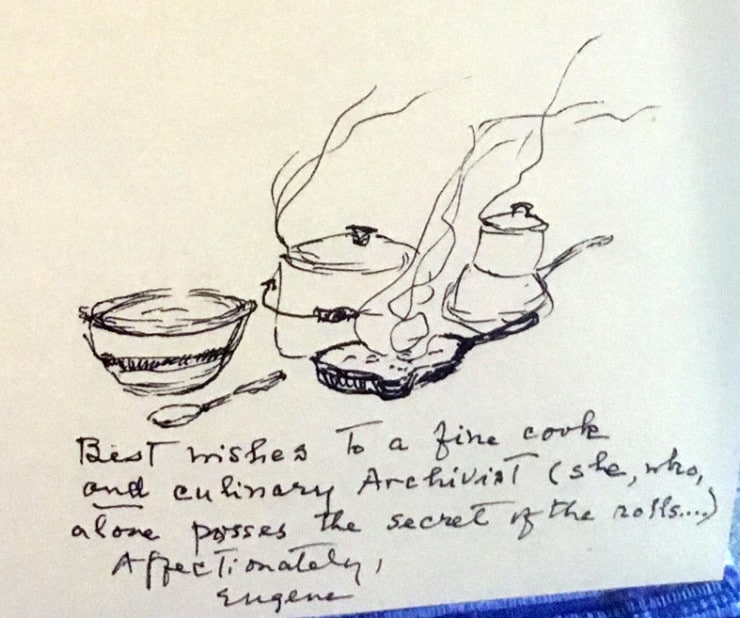 Best wishes to a fine cook
and culinary Archivist (she, who,
alone posses the secret of the rolls....)
Affectionately,
Eugene